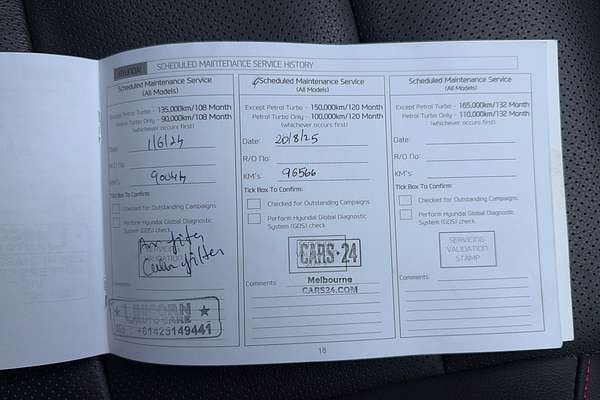 HYUNDAI SCHEDULED MAINTENANCE SERVICE HISTORY
Scheduled Maintenance Service
(All Models)
Except Petrol Turbo - 135,000km/108 Month
Petrol Turbo Only - 90,000km/108 Month
(whichever occurs first)
Date: 1/6/24
R/O No:
KM's:
Tick Box To Confirm:
Checked for Outstanding Campaigns
Perform Hyundai Global Diagnostic
System (GDS) check
Air filter
Cabin filter
Comments
UNICORN
AUTO CARE
+61425149441
Scheduled Maintenance Service
(All Models)
Except Petrol Turbo - 150,000km/120 Month
Petrol Turbo Only - 100,000km/120 Month
(whichever occurs first)
Date: 20/8/25
R/O No:
KM's: 96566
Tick Box To Confirm:
Checked for Outstanding Campaigns
Perform Hyundai Global Diagnostic
System (GDS) check
CARS·24
Melbourne
Comments: CARS24.COM
Scheduled Maintenance Service
(All Models)
Except Petrol Turbo - 165,000km/132 Month
Petrol Turbo Only - 110,000km/132 Month
(whichever occurs first)
Date:
R/O No:
KM's:
Tick Box To Confirm:
Checked for Outstanding Campaigns
Perform Hyundai Global Diagnostic
System (GDS) check
SERVICING
VALIDATION
STAMP
Comments:
18